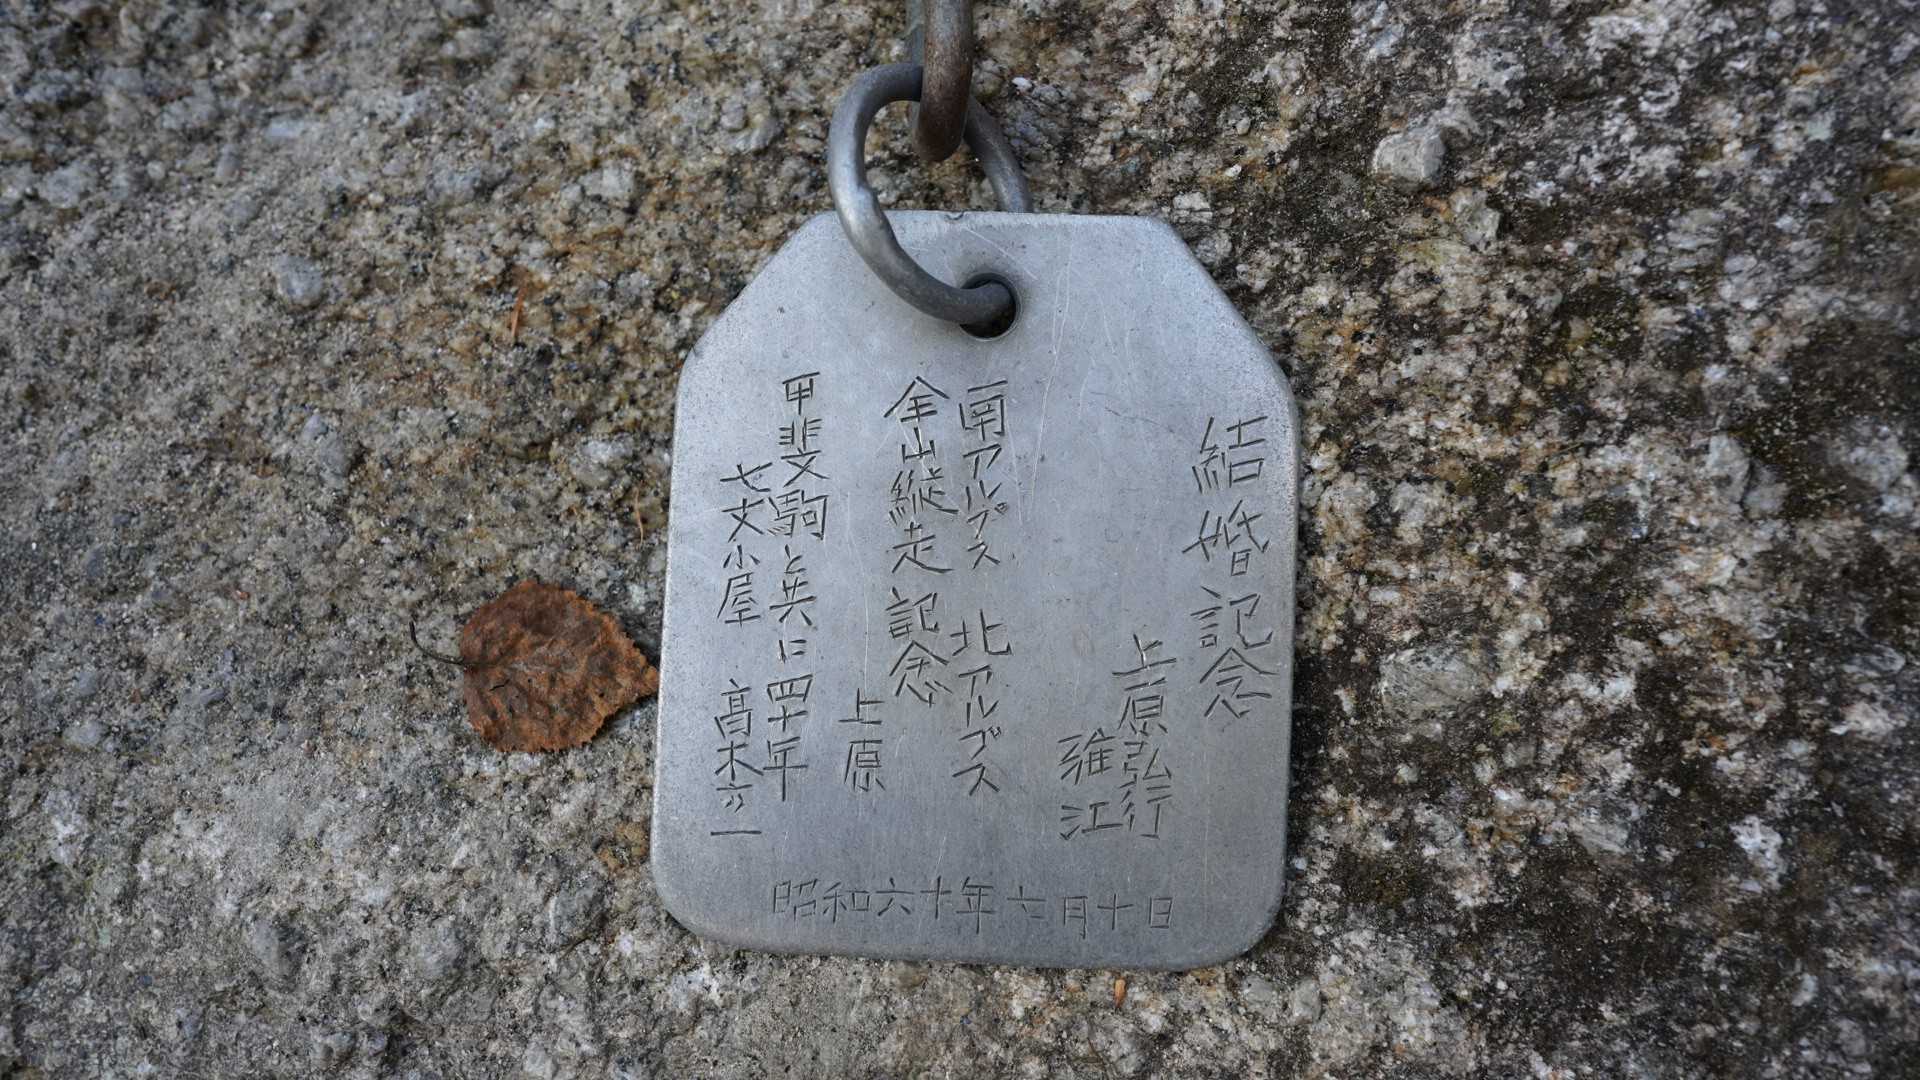 結婚記念
上原弘行
雅江
南アルプス 北アルプス
全山縦走記念
上原
甲斐駒と共に四十年
七丈小屋 高木六一
昭和六十年七月十日